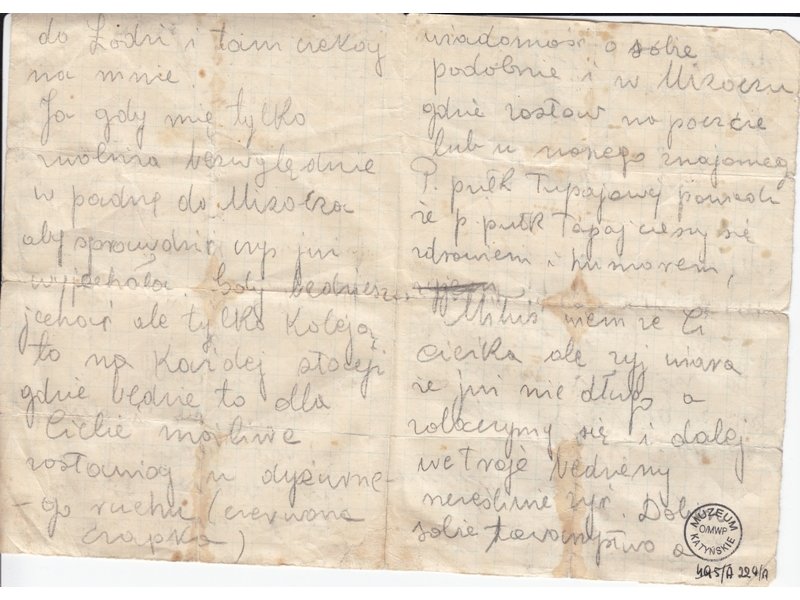 do Łodzi i tam czekaj
na mnie
Ja gdy mię tylko
zwolnią bezwzględnie
w padnę do Mizocza
aby sprawdzić czyś już
wyjechała. Gdy będziesz
jechać ale tylko Koleją
to na każdej stacji
gdzie będzie to dla
Ciebie możliwe
zostawiaj u dyżurne-
go ruchu (czerwona
czapka)
wiadomość o sobie
podobnie i w Mizoczu
gdzie zostaw na poczcie
lub u naszego znajomeg
P. pułk Tupajowej powiedz
że p pułk Tapaj cieszy się
zdrowiem i humorem,
Miluś wiem że Ci
ciężka ale żyj wiarą
że już nie długo a
zobaczymy się i dalej
we troje będziemy
szczęśliwie żyć. Dobierz
sobie towarzystwo a
MUZEUM KATYŃSKIE
O/MWP
495/A 229/A